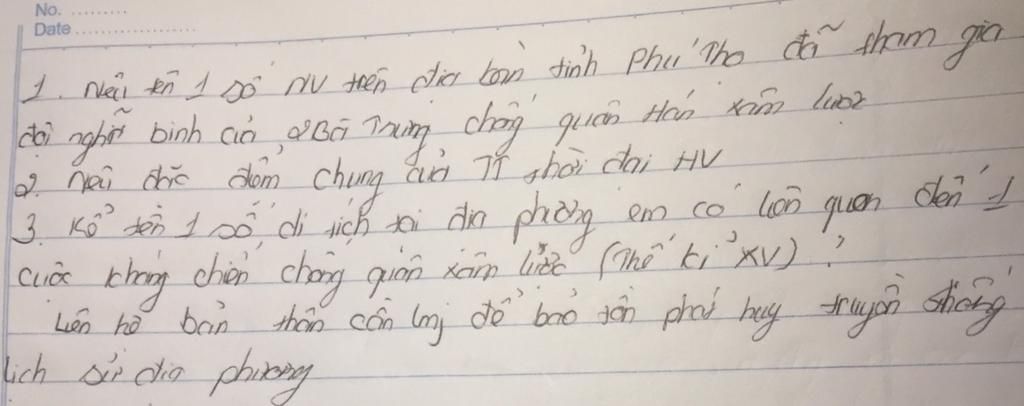 No. .........
Date ..................
1. Nêu tên 1 số NV trên địa bàn tỉnh Phú Thọ đã tham gia
đội nghĩa binh của 2 Bà Trưng chống quân Hán xâm lược
2. Nêu đặc điểm chung của TT thời đại HV
3. Kể tên 1 số di tích tại địa phương em có liên quan đến 1
cuộc kháng chiến chống quân xâm lược (Thế kỉ XV)?
Liên hệ bản thân cần làm j để bảo tồn phát huy truyền thống
lịch sử địa phương